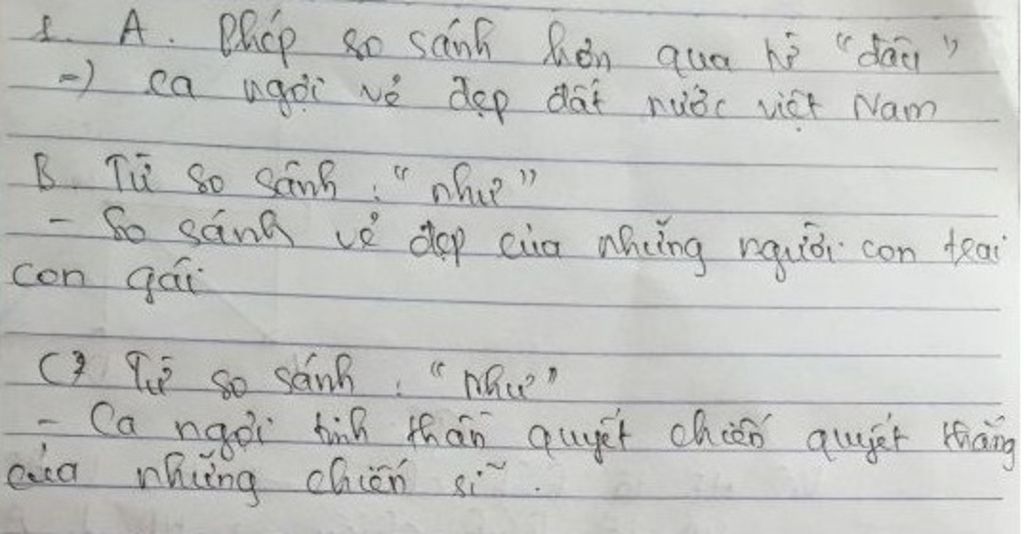 1. A. Phép so sánh hơn qua từ "đâu"
=) Ca ngợi vẻ đẹp đất nước việt Nam
B. Từ so sánh : "như"
- So sánh vẻ đẹp của những người con trai
con gái
C, Từ so sánh : "như"
- Ca ngợi tinh thần quyết chiến quyết thắng
của những chiến sĩ .